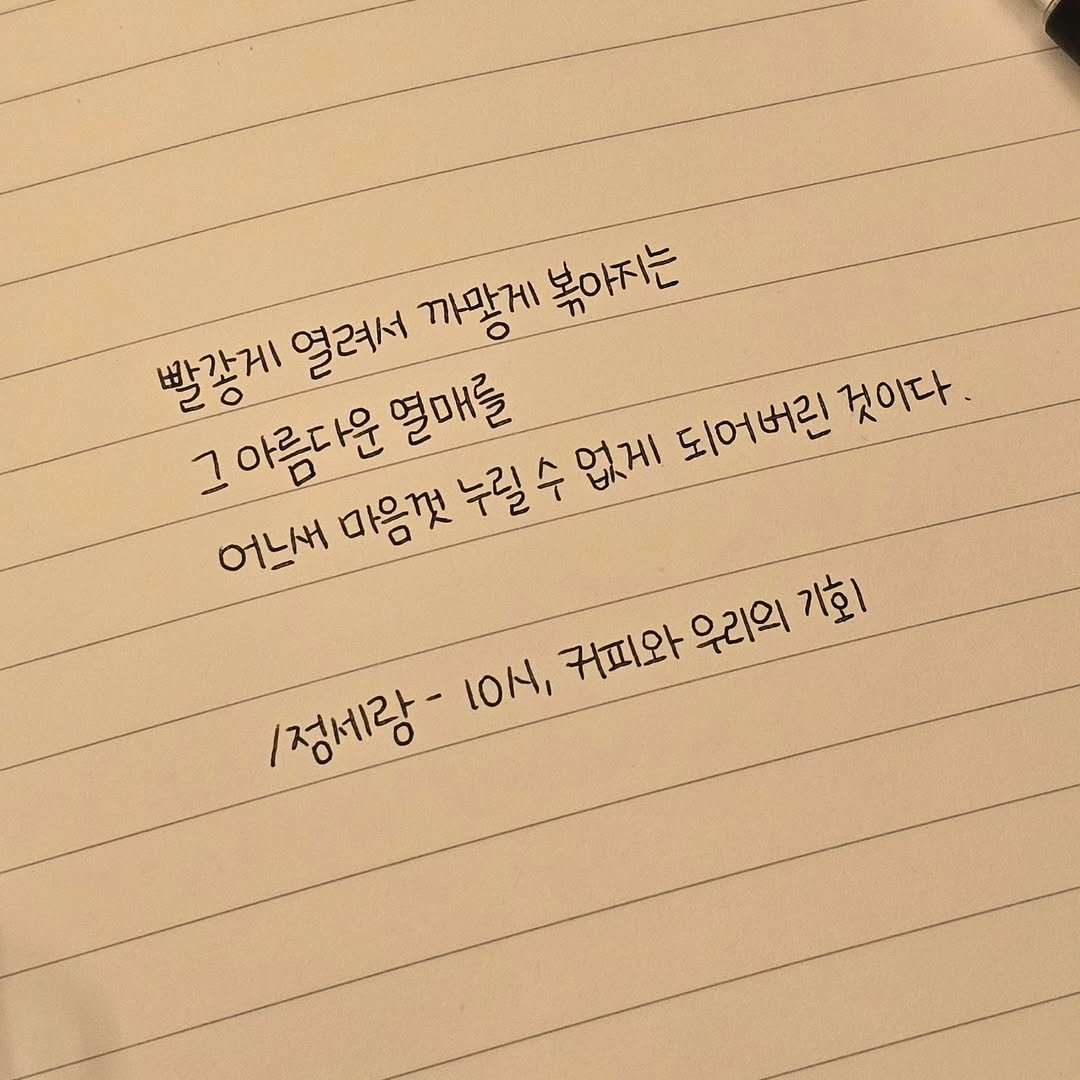 빨갛게 열려서 까맣게 볶아지는
그 아름다운 열매를
어느새 마음껏 누릴 수 없게 되어버린 것이다.
/정세랑 - 10시, 커피와 우리의 기회